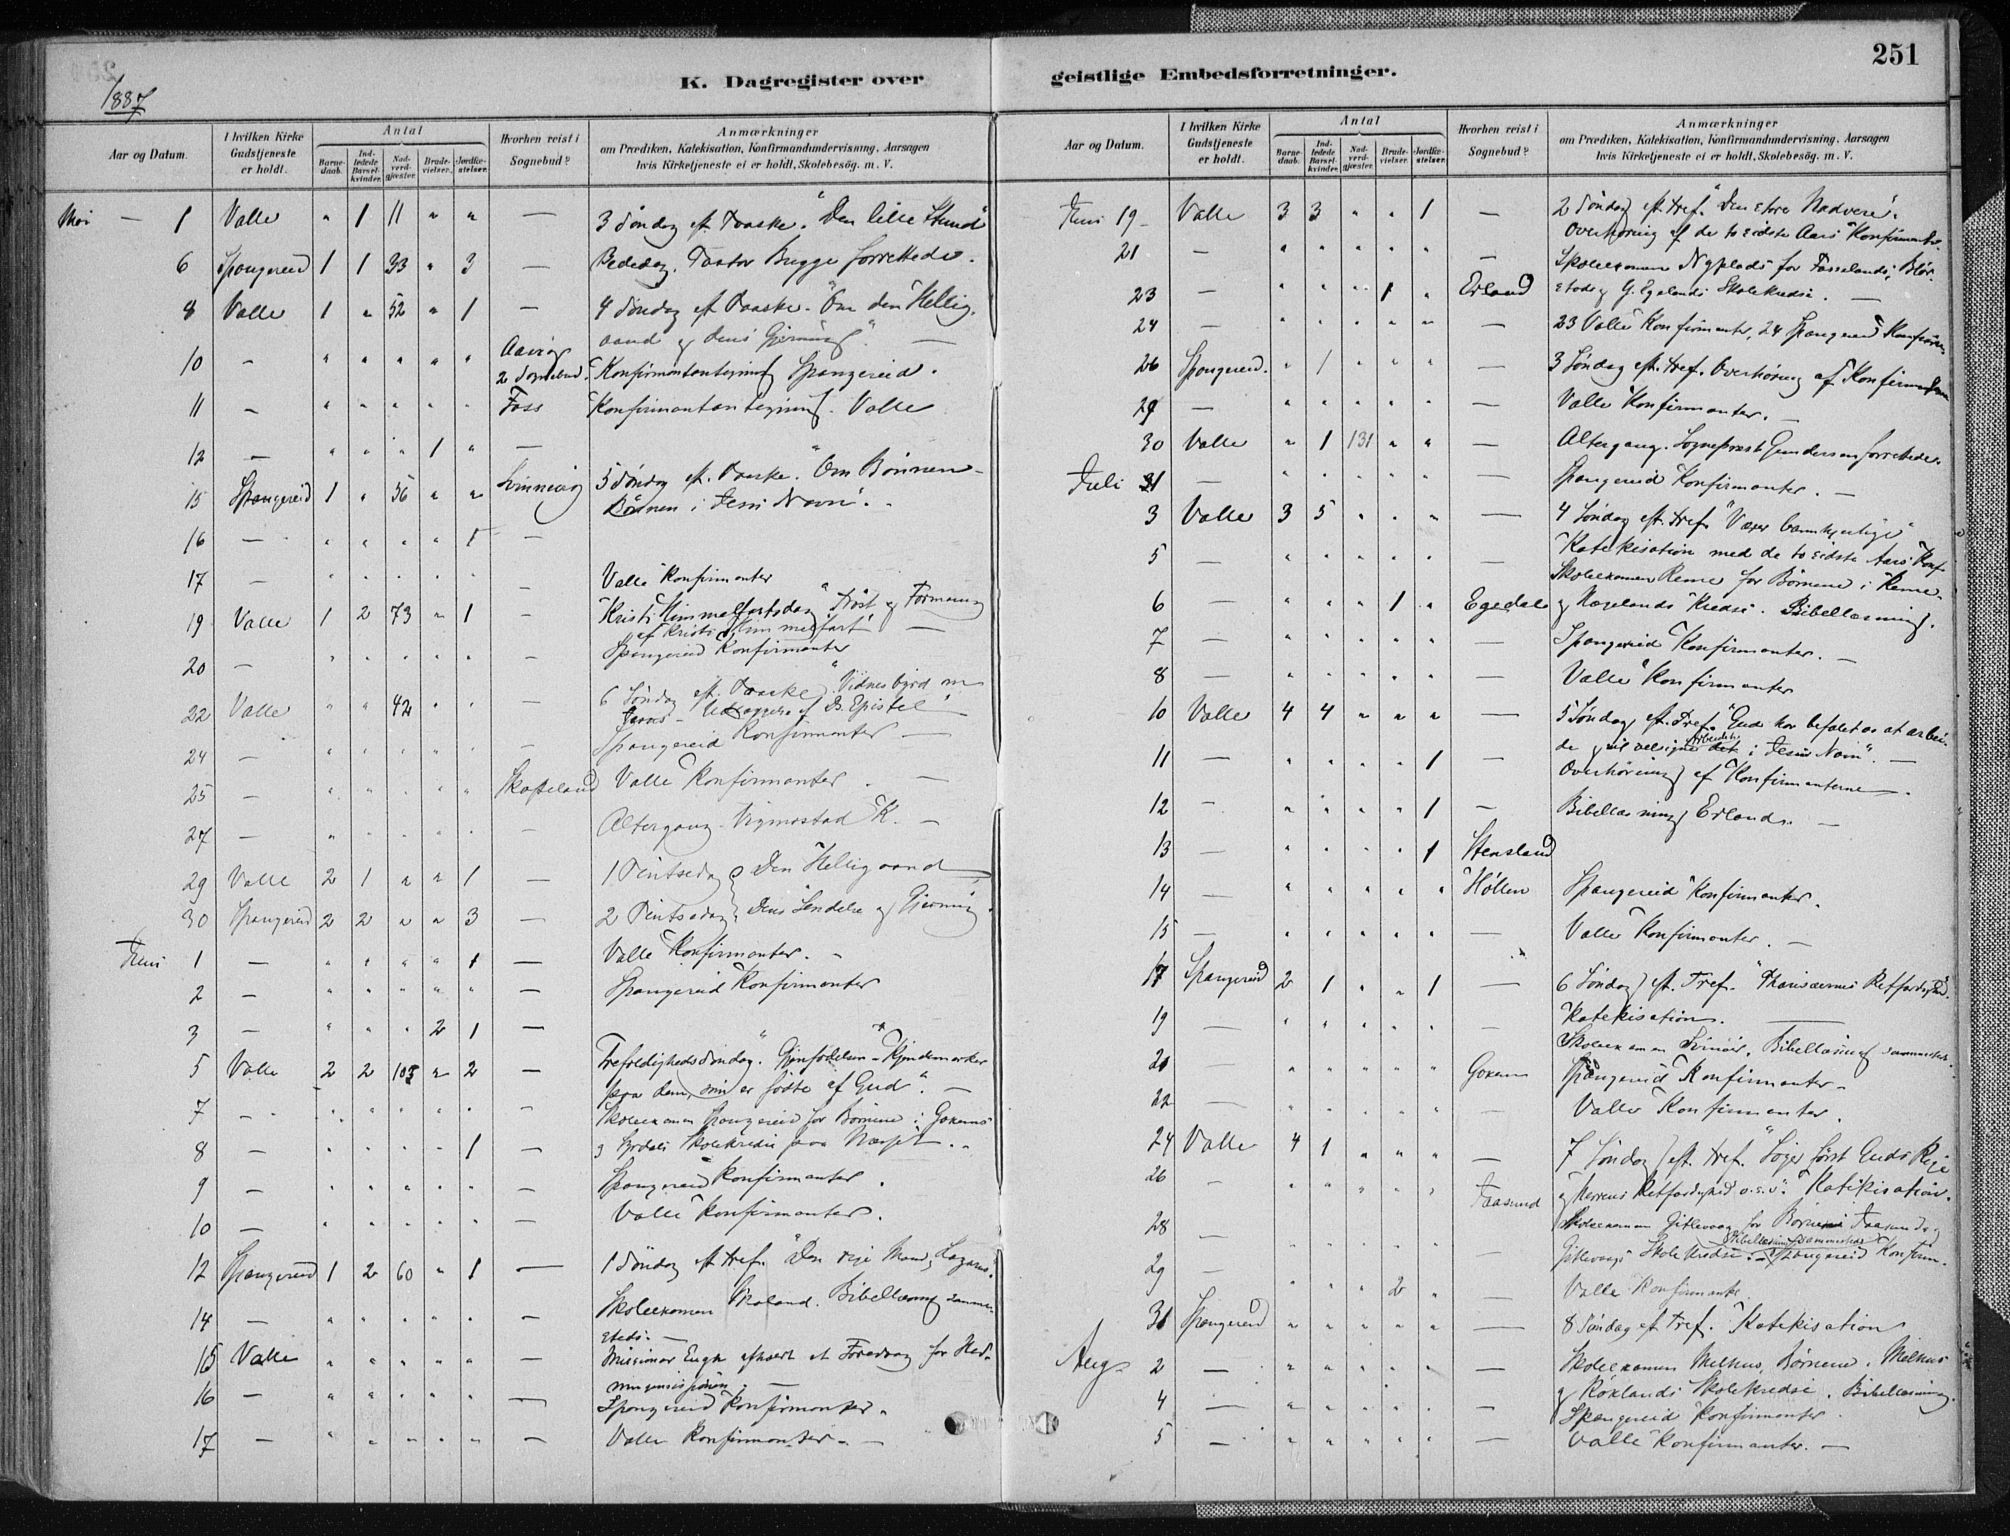 251
1887
K. Dagregister over geistlige Embedsforretninger.
Aar og Datum.
I hvilken Kirke Gudstjeneste er holdt.
Antal
Barnedaab.
Indledede Barselkvinder.
Nadverdgjæster.
Brudevielser.
Jordfæstelser.
Hvorhen reist i Sognebud?
Anmærkninger
om Prædiken, Katekisation, Konfirmandundervisning, Aarsagen
hvis Kirketjeneste ei er holdt, Skolebesøg. m. V.
Mai — 1 Valle " 1 11 " " — 3 Søndag eft. Paaske. "Den lille Stund"
6 Spangereid 1 1 33 " 3 — Bededag. Pastor Bugge forrettede.
8 Valle 1 " 52 " 1 — 4 Søndag eft Paaske. "Om den Hellig-
aand og dens Gjerning". —
10 - " " " " " 2 Sognebud. Konfirmantantegning Spangereid.
11 - " " " " " Foss Konfirmantantegning. Valle
12 — " " " 1 " —
15 Spangereid 1 " 56 " " 5 Søndag eft. Paaske. "Om Bønnen -
Bønnen i Jesu Navn".
16 — " " " " 1 —
17 - " " " " " - Valle Konfirmanter
19 Valle 1 2 73 " 1 - Kristi Himmelfartsdag "Trøst og Formaning
af Kristi Himmelfart" —
20 — " " " " " - Spangereid Konfirmanter
22 Valle " " 42 " " - 6 Søndag eft. Paaske. "Vidnesbyrd om
Jesus -
24 — " " " " " - Spangereid Konfirmanter —
25 — " " " " " Skofteland Valle Konfirmanter. —
27 — " " " " " - Altergang Vigmostad K. —
29 Valle 2 1 " " 1 — 1 Pintsedag } Den Helligaand
30 Spangereid 2 2 " " 3 — 2 Pintsedag } Dens Sendelse og Gjerning.
Juni 1 — " " " " 1 — Valle Konfirmanter. -
2 — " " " " " — Spangereid Konfirmanter
3 — " " " 2 1 —
5 Valle 2 2 105 " 2 — Trefoldighedssøndag. "Gjenfødelsen - Kjendemærker
paa dem, som er fødte af Gud". —
7 - " " " " " - Skoleexamen Spangereid for Børnene i Gokems
8 — " " " " 1 — Skolekredse paa Næsset. -
9 — " " " " " — Spangereid Konfirmanter.
10 — " " " " " — Valle Konfirmanter.
12 Spangereid 1 2 60 " 1 — 1 Søndag eft Tref. "Den rige Mand, Lazarus".
14 — " " " " " — Skoleexamen Skoland. Bibellæsning samme-
steds. —
15 Valle " " " " " — Missionær Engh afholdt et Foredrag for Hed-
ningemissionen. —
16 — " " " " " — Spangereid Konfirmanter.
17 — " " " " " — Valle Konfirmanter. —
Aar og Datum.
I hvilken Kirke Gudstjeneste er holdt.
Antal
Barnedaab.
Indledede Barselkvinder.
Nadverdgjæster.
Brudevielser.
Jordfæstelser.
Hvorhen reist i Sognebud?
Anmærkninger
om Prædiken, Katekisation, Konfirmandundervisning, Aarsagen
hvis Kirketjeneste ei er holdt, Skolebesøg. m. V.
Juni 19 Valle 3 3 " " 1 — 2 Søndag eft. Tref. "Den store Nadvere".
Overhøring af de to sidste Aars Konfirmanter.
21 — " " " " " — Skoleexamen Nyplads for Fasselands,
23 — " " " 1 " Erland og G. Egelands Skolekredse. —
24 — " " " " " — 23 Valle Konfirmanter, 24 Spangereid Konfirmanter
26 Spangereid. " 1 " " " — 3 Søndag eft. Tref. Overhøring af Konfirmanterne
29 — " " " " " — Valle Konfirmanter. —
30 Valle " 1 131 " " — Altergang. Sogneprest Gundersen forrettede.
Juli 1 — " " " " " — Spangereid Konfirmanter. —
3 Valle 3 5 " " " — 4 Søndag eft. Tref. "Værer barmhjertige"
Katekisation med de to sidste Aars Konf.
5 — " " " " " — Skoleexamen Renne for Børnene i Renne
6 — " " " 1 " Egedal og Hægelands Kredse. Bibellæsning.
7 — " " " " " — Spangereid Konfirmanter. —
8 — " " " " " — Valle Konfirmanter
10 Valle 4 4 " " " — 5 Søndag eft. Tref. "Gud har befalet os at arbei-
de og vil velsigne Arbeidet i Jesu Navn". —
11 — " " " " 1 — Overhøring af Konfirmanterne.
12 — " " " " 1 — Bibellæsning Erland. —
13 — " " " " 1 Stensland
14 — " " " " " Høllen Spangereid Konfirmanter.
15 — " " " " " — Valle Konfirmanter. —
17 Spangereid 2 1 " " 1 — 6 Søndag eft. Tref. "Pharisæernes Retfærdighed".
Katekisation. —
19 — " " " " " — Skoleexamen Svinør. Bibellæsning sammesteds.
21 — " " " " " Gokem Spangereid Konfirmanter -
22 — " " " " " — Valle Konfirmanter.
24 Valle 4 1 " " " — 7 Søndag eft. Tref. "Søger først Guds Rige
og Herrens Retfærdighed o.s.v." Katekisation.
26 — " " " " " Faasund Skoleexamen Gitlevaag for Børnene i Faasund og
28 — " " " " " Gitlevaags Skolekredse. Bibellæsning sammesteds Spangereid Konfirm.
29 — " " " 2 " — Valle Konfirmanter.
31 Spangereid " " " " " — 8 Søndag eft Tref. Katekisation
Aug. 2 — " " " " " — Skoleexamen Melhus, Børnene i Melhus
og Røxlands Skolekredse. Bibellæsning.
4 — " " " " " — Spangereid Konfirmanter.
5 — " " " " " — Valle Konfirmanter. —